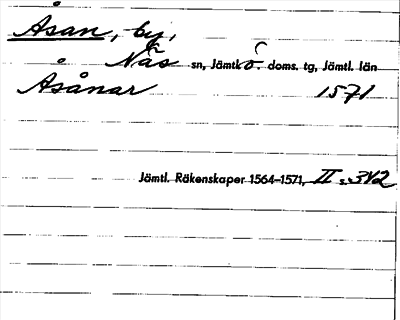 Åsan, by,
Näs sn, Jämtl. ö. doms. tg, Jämtl. län
Åsånar 1571
Jämtl. Räkenskaper 1564-1571, II :342